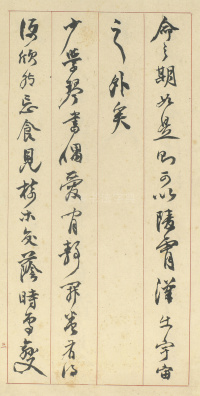 命之期如是則可以陵霄漢出宇宙
之外矣
少學琴書偶愛閒靜開卷有得
便欣然忘食見樹木交蔭時鳥變